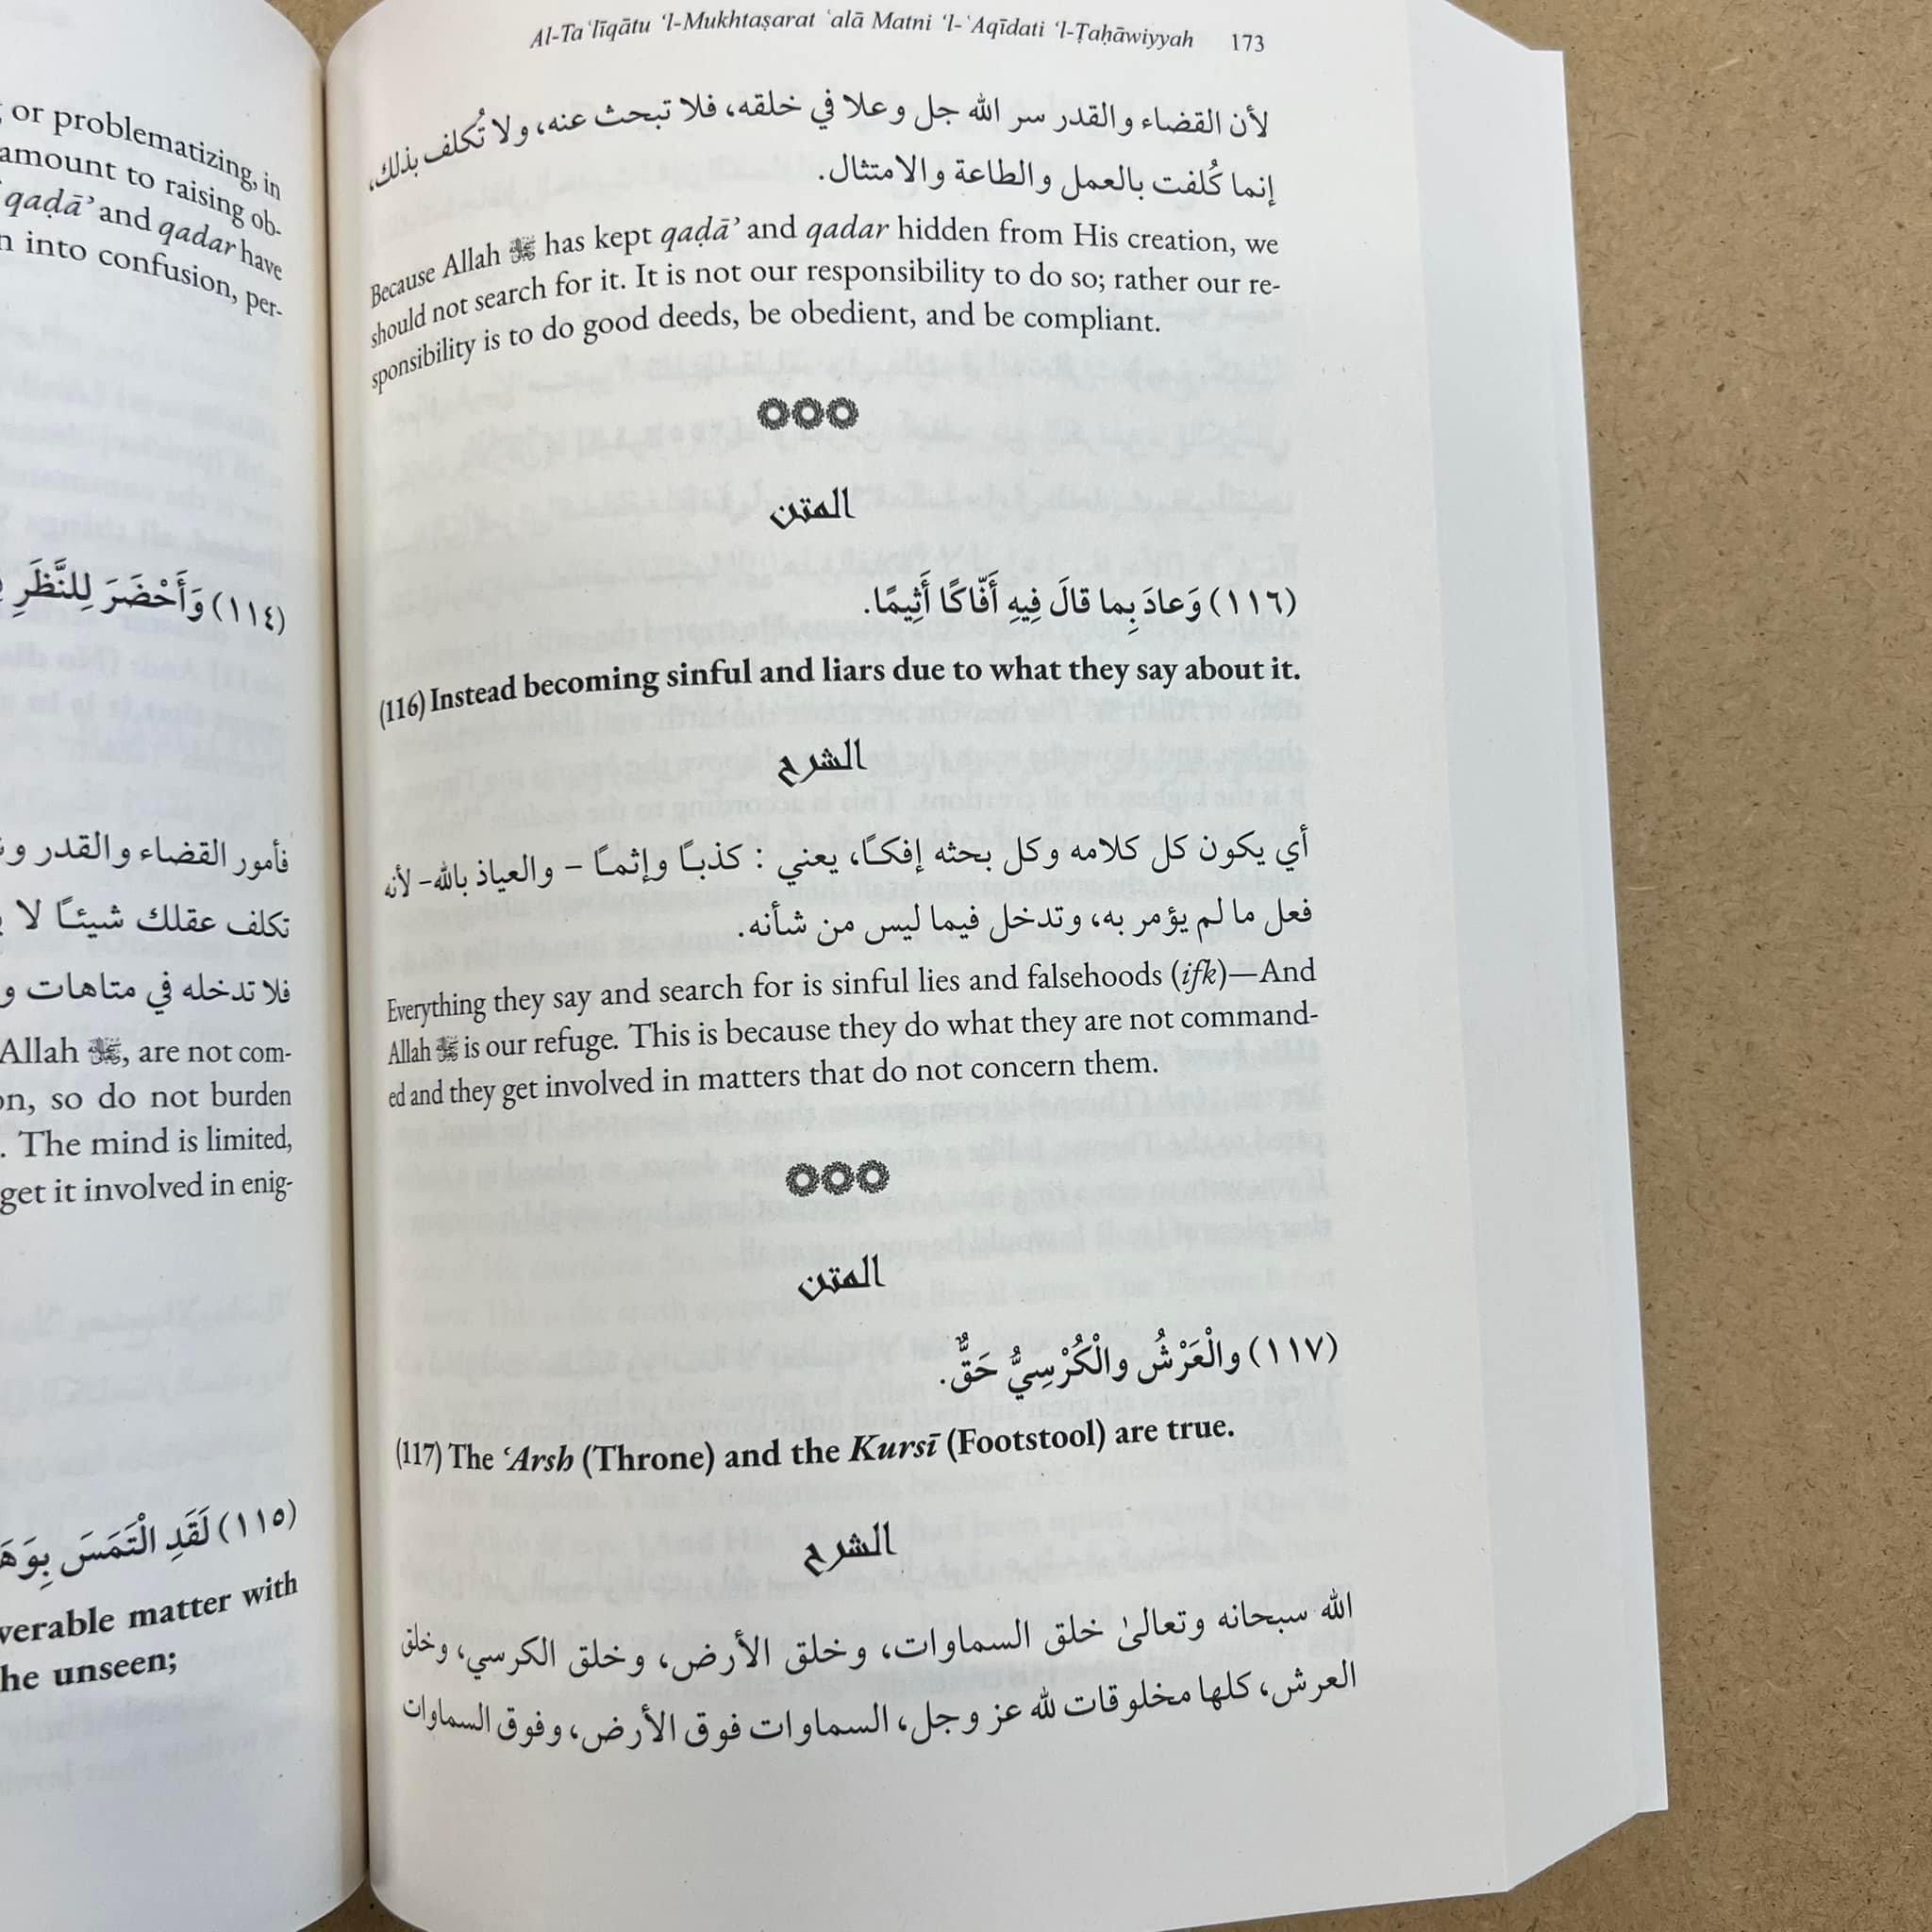 or problematizing, in
amount to raising ob-
qaḍā’ and qadar have
into confusion, per-
(١١٤) وَأَحْضَرَ لِلنَّظَرِ
فأمور القضاء والقدر
تكلف عقلك شيئًا لا
فلا تدخله في متاهات و
Allah ﷻ, are not com-
on, so do not burden
. The mind is limited,
get it involved in enig-
(١١٥) لَقَدِ الْتَمَسَ
verable matter with
he unseen;
Al-Taʿlīqātu ‘l-Mukhtaṣarat ʿalā Matni ‘l-ʿAqīdati ‘l-Ṭaḥāwiyyah 173
لأن القضاء والقدر سر الله جل وعلا في خلقه، فلا تبحث عنه، ولا تُكلف بذلك،
إنما كُلفت بالعمل والطاعة والامتثال.
Because Allah ﷻ has kept qaḍā’ and qadar hidden from His creation, we
should not search for it. It is not our responsibility to do so; rather our re-
sponsibility is to do good deeds, be obedient, and be compliant.
المتن
(١١٦) وَعادَ بِما قالَ فِيهِ أَفّاكًا أَثِيمًا.
(116) Instead becoming sinful and liars due to what they say about it.
الشرح
أي يكون كل كلامه وكل بحثه إفكًا، يعني : كذبًا وإثمًا – والعياذ بالله- لأنه
فعل ما لم يؤمر به، وتدخل فيما ليس من شأنه.
Everything they say and search for is sinful lies and falsehoods (ifk)—And
Allah ﷻ is our refuge. This is because they do what they are not command-
ed and they get involved in matters that do not concern them.
المتن
(١١٧) والْعَرْشُ والْكُرْسِيُّ حَقٌّ.
(117) The ‘Arsh (Throne) and the Kursī (Footstool) are true.
الشرح
الله سبحانه وتعالىٰ خلق السماوات، وخلق الأرض، وخلق الكرسي، وخلق
العرش، كلها مخلوقات لله عز وجل، السماوات فوق الأرض، وفوق السماوات